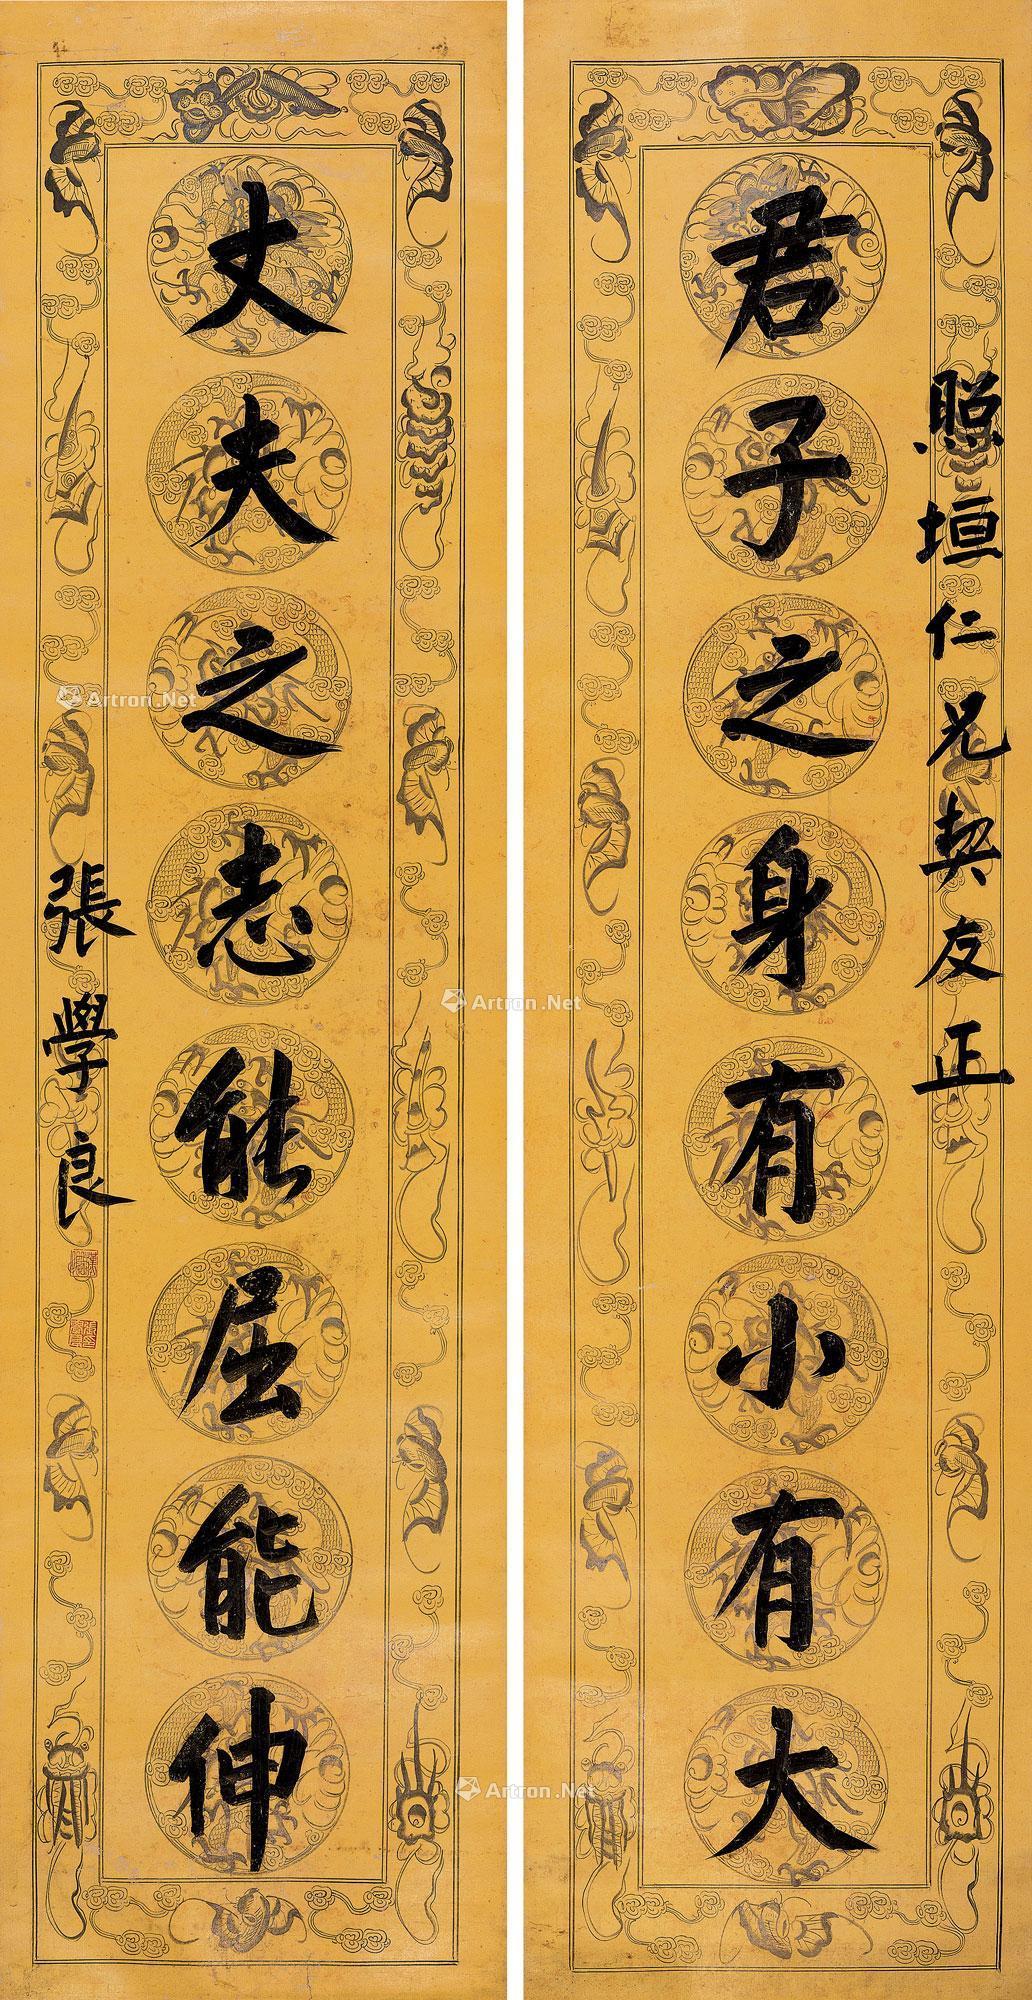 照垣仁兄契友正
君子之身有小有大
丈夫之志能屈能伸
張學良
Artron.Net
Artron.Net
Artron.Net